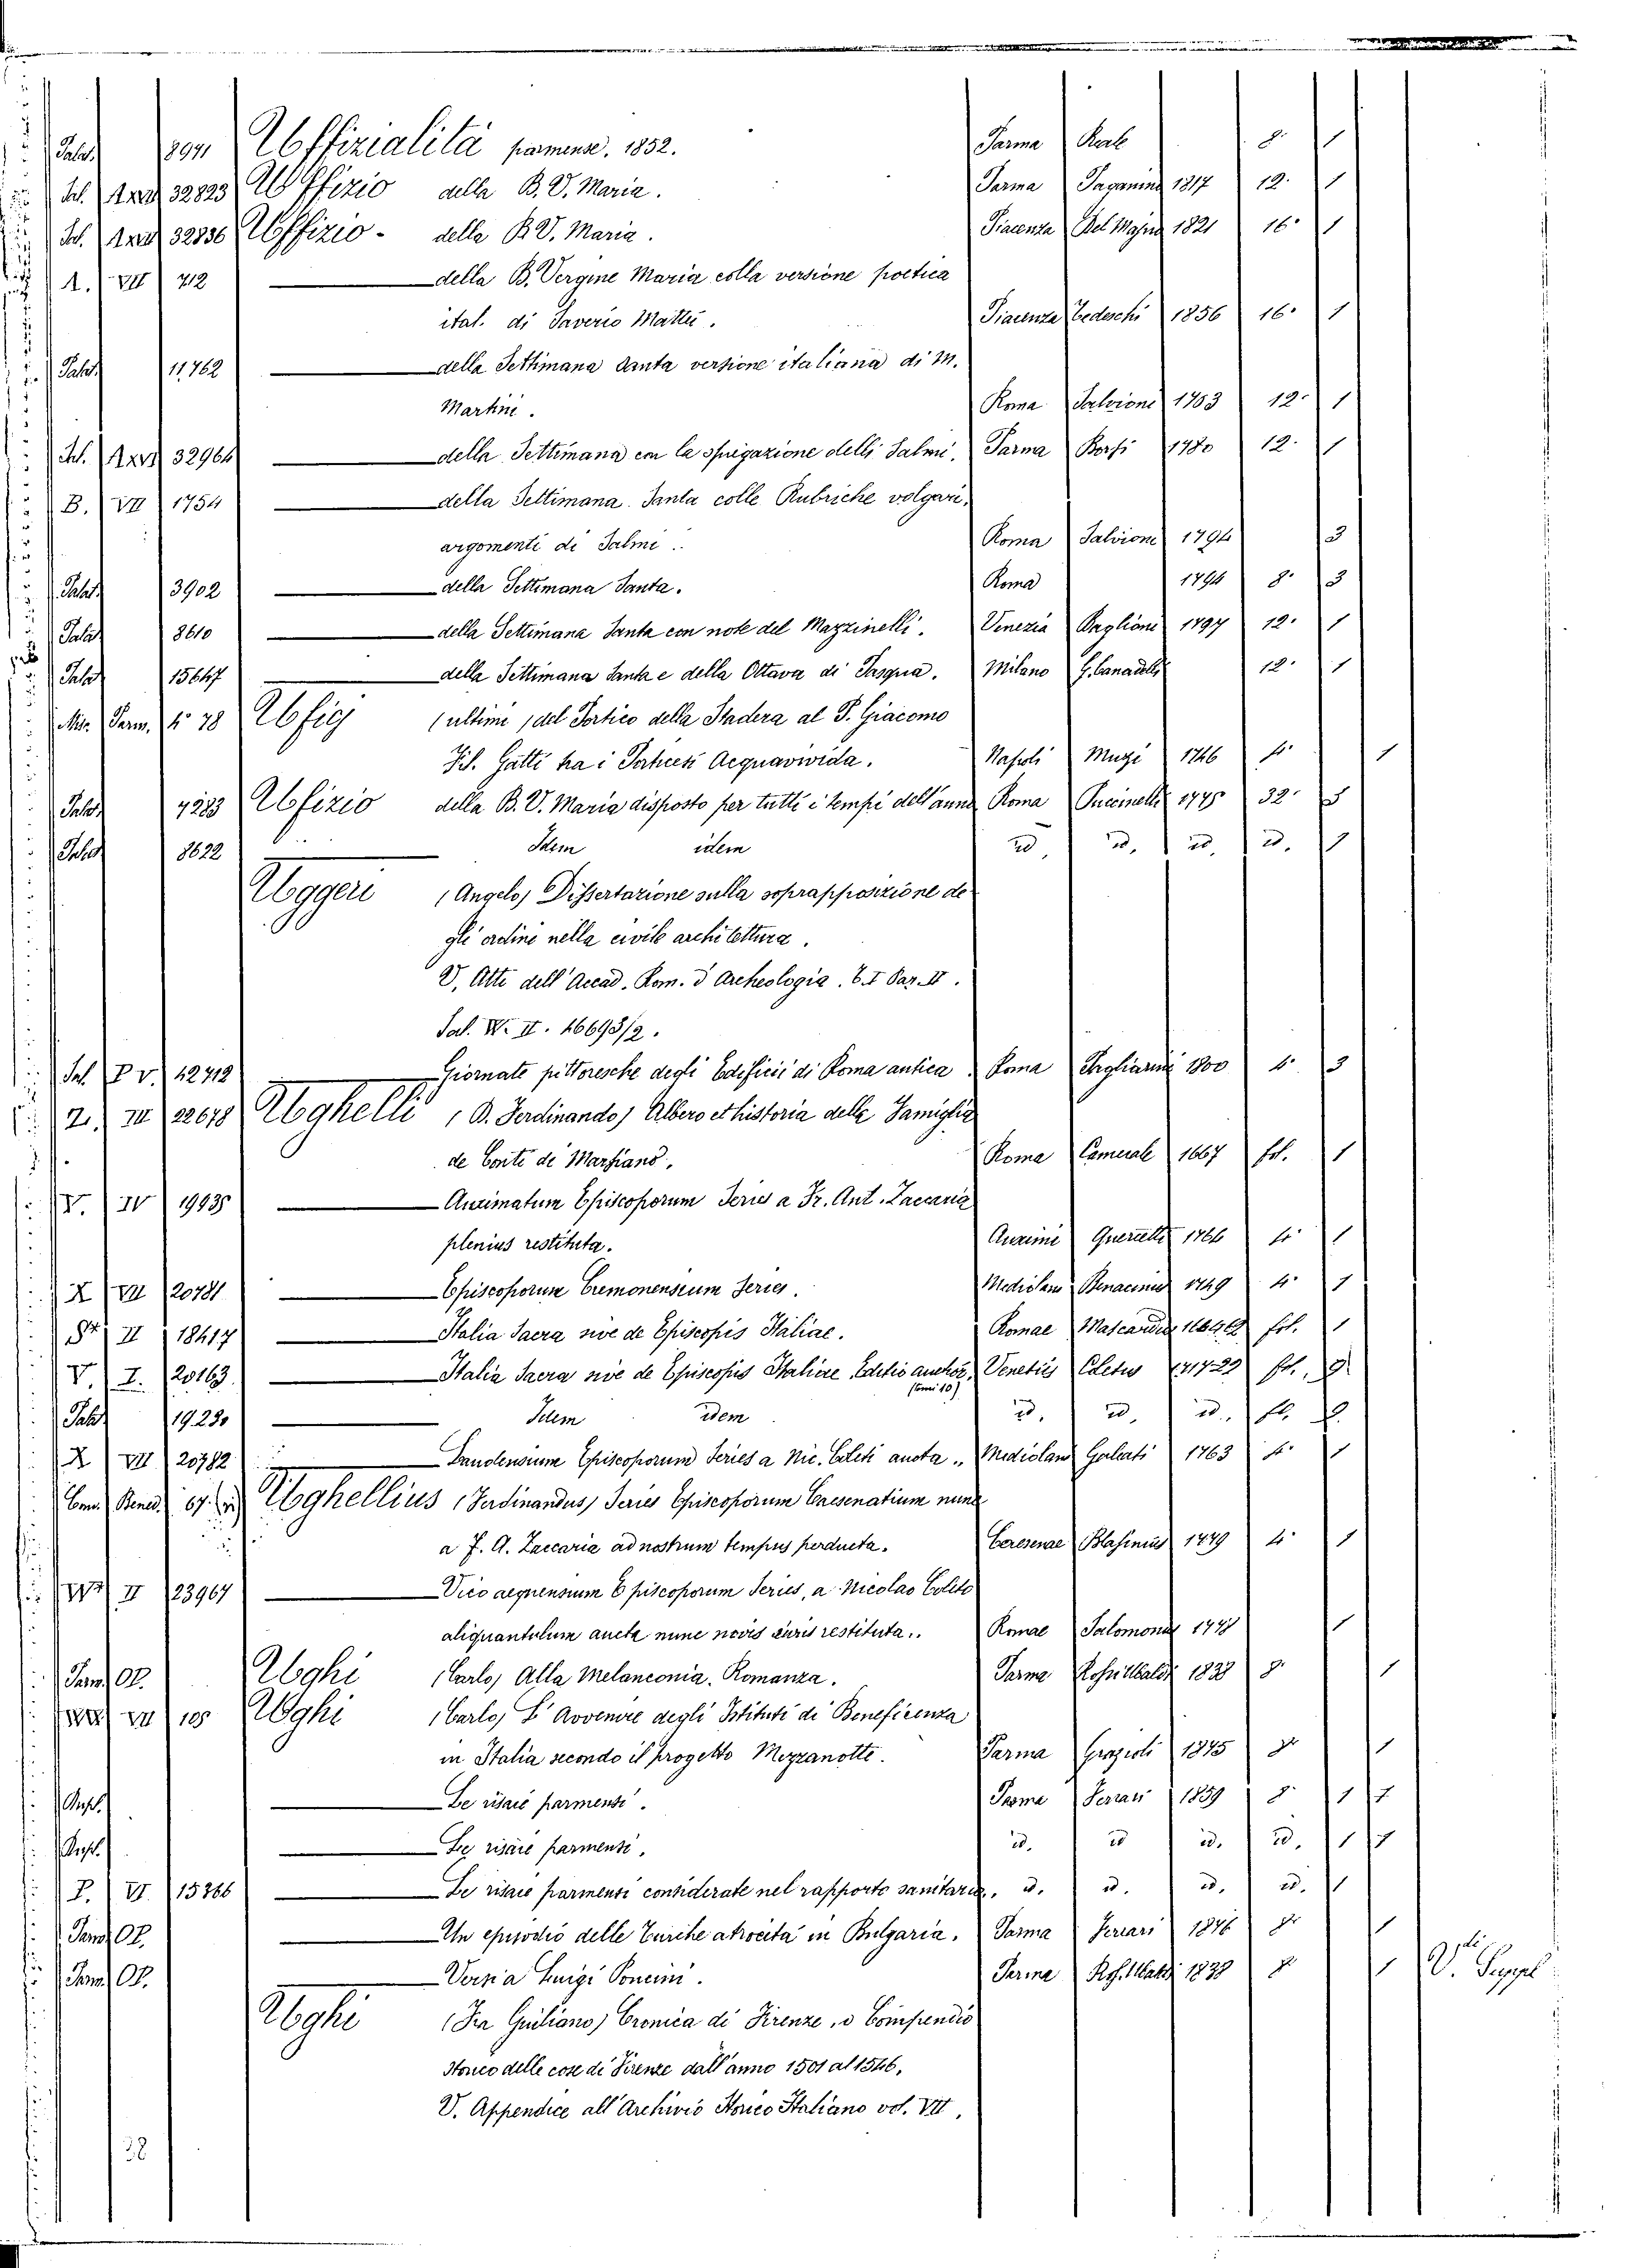 Palat. 8941 Uffizialità parmense. 1852. Parma Reale 8. 1
Sal. 32823 Uffizio della B. V. Maria. Parma Paganini 1817 12. 1
Sal. 32836 Uffizio - della B V. Maria. Piacenza Del Majno 1821 16. 1
A. VII 712 della B. Vergine Maria colla versione poetica
ital. di Saverio Mattei. Piacenza Tedeschi 1856 16. 1
Palat. 11,762 della Settimana Santa versione italiana di M.
Martini. Roma Salvioni 1783 12. 1
Sal. 32964 della Settimana con la spiegazione delli Salmi. Parma Borsi 1780 12. 1
B. VII 1754 della Settimana Santa colle Rubriche volgari,
argomenti di Salmi. Roma Salvioni 1794 3
Palat. 3902 della Settimana Santa. Roma 1794 8. 3
Palat. 8610 della Settimana Santa con note del Mazzinelli. Venezia Baglioni 1797 12. 1
Palat. 15647 della Settimana Santa e della Ottava di Pasqua. Milano 12. 1
Mis. Parm. 4° 78 Ufizj (ultimi) del Portico della Stadera al P. Giacomo
Fil. Gatti tra i Portici Acquavivida. Napoli Muzi 1746 4. 1
Palat. 4283 Ufizio della B. V. Maria disposto per tutti i tempi dell'anno Roma Puccinelli 1745 32.
Palat. 8622 Idem idem id. id. id. id. 1
Uggeri (Angelo) Dissertazione sulla soprapposizione de
gli ordini nella civile architettura.
V. Atti dell'Accad. Rom. d'Archeologia. T. I Par. II.
Sal. W. II. 16693/2.
Sal. P V. 42712 Giornate pittoresche degli Edificii di Roma antica. Roma Pagliarini 1800 4. 3
Z. III 22678 Ughelli (D. Ferdinando) Albero et historia della Famiglia
de Conti di Marsiano. Roma Camerale 1667 fol. 1
V. IV 19935 Auximatum Episcoporum Series a Fr. Ant. Zaccaria
plenius restituta. Auximi Quercetti 1764 4. 1
X VII 20781 Episcoporum Cremonensium Series. Mediolani 1749 4. 1
II 18417 Italia Sacra sive de Episcopis Italiae. Romae Mascardi fol. 1
V. I. 20163 Italia Sacra sive de Episcopis Italiae. Editio auctior, Venetiis Coletus 1717-22 fol.
(tomi 10)
Palat. 19.230 Idem idem id. id. id.
X VII 20782 Laudensium Episcoporum Series a Nic. Coleti aucta. Mediolani Galeati 1763 4. 1
Com. Bened. 67. Ughellius (Ferdinandus) Series Episcoporum Caesenatium nunc
a F. A. Zaccaria ad nostrum tempus perducta. Caesenae Blasinius 1779 4. 1
II 23967 Vico aequensium Episcoporum Series, a Nicolao Coleto
aliquantulum aucta nunc novis curis restituta. Romae Salomoni 1778 1
Parm. Op. Ughi (Carlo) Alla Melanconia. Romanza. Parma Rossi Ubaldi 1838 8. 1
VII 105 Ughi (Carlo) L'Avvenire degli Istituti di Beneficenza
in Italia secondo il progetto Mezzanotte. Parma Grazioli 1875 8. 1
Suppl. Le risaie parmensi. Parma Ferrari 1859 8. 1
Suppl. Le risaie parmensi. id. id. id. id. 1
P. VI. 15366 Le risaie parmensi considerate nel rapporto sanitario. id. id. id. id. 1
Parm. Op. Un episodio delle Turche atrocità in Bulgaria. Parma Ferrari 1876 8. 1
Parm. Op. Versi a Luigi Poncini. Parma Ros. Ubaldi 1838 8. 1 V. Suppl.
Ughi (Fra Giuliano) Cronica di Firenze, o Compendio
storico delle cose di Firenze dall'anno 1501 al 1546.
V. Appendice all'Archivio Storico Italiano vol. VII.
38